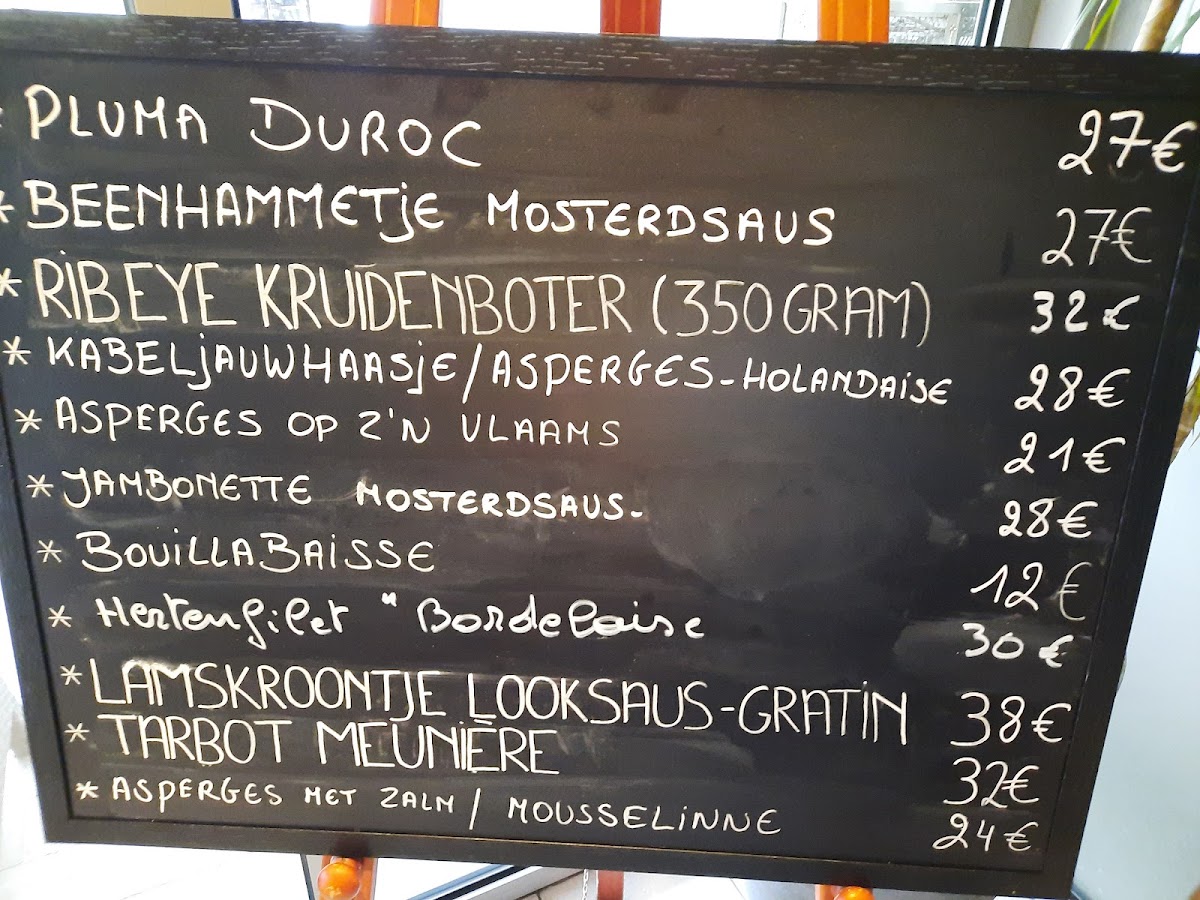 * PLUMA DUROC 27€
* BEENHAMMETJE MOSTERDSAUS 27€
* RIBEYE KRUIDENBOTER (350 GRAM) 32€
* KABELJAUWHAASJE/ASPERGES-HOLANDAISE 28€
* ASPERGES OP Z'N VLAAMS 21€
* JAMBONETTE MOSTERDSAUS- 28€
* BOUILLABAISSE 12€
* Hertenfilet "Bordelaise 30€
* LAMSKROONTJE LOOKSAUS-GRATIN 38€
* TARBOT MEUNIÈRE 32€
* ASPERGES MET ZALM / MOUSSELINNE 24€